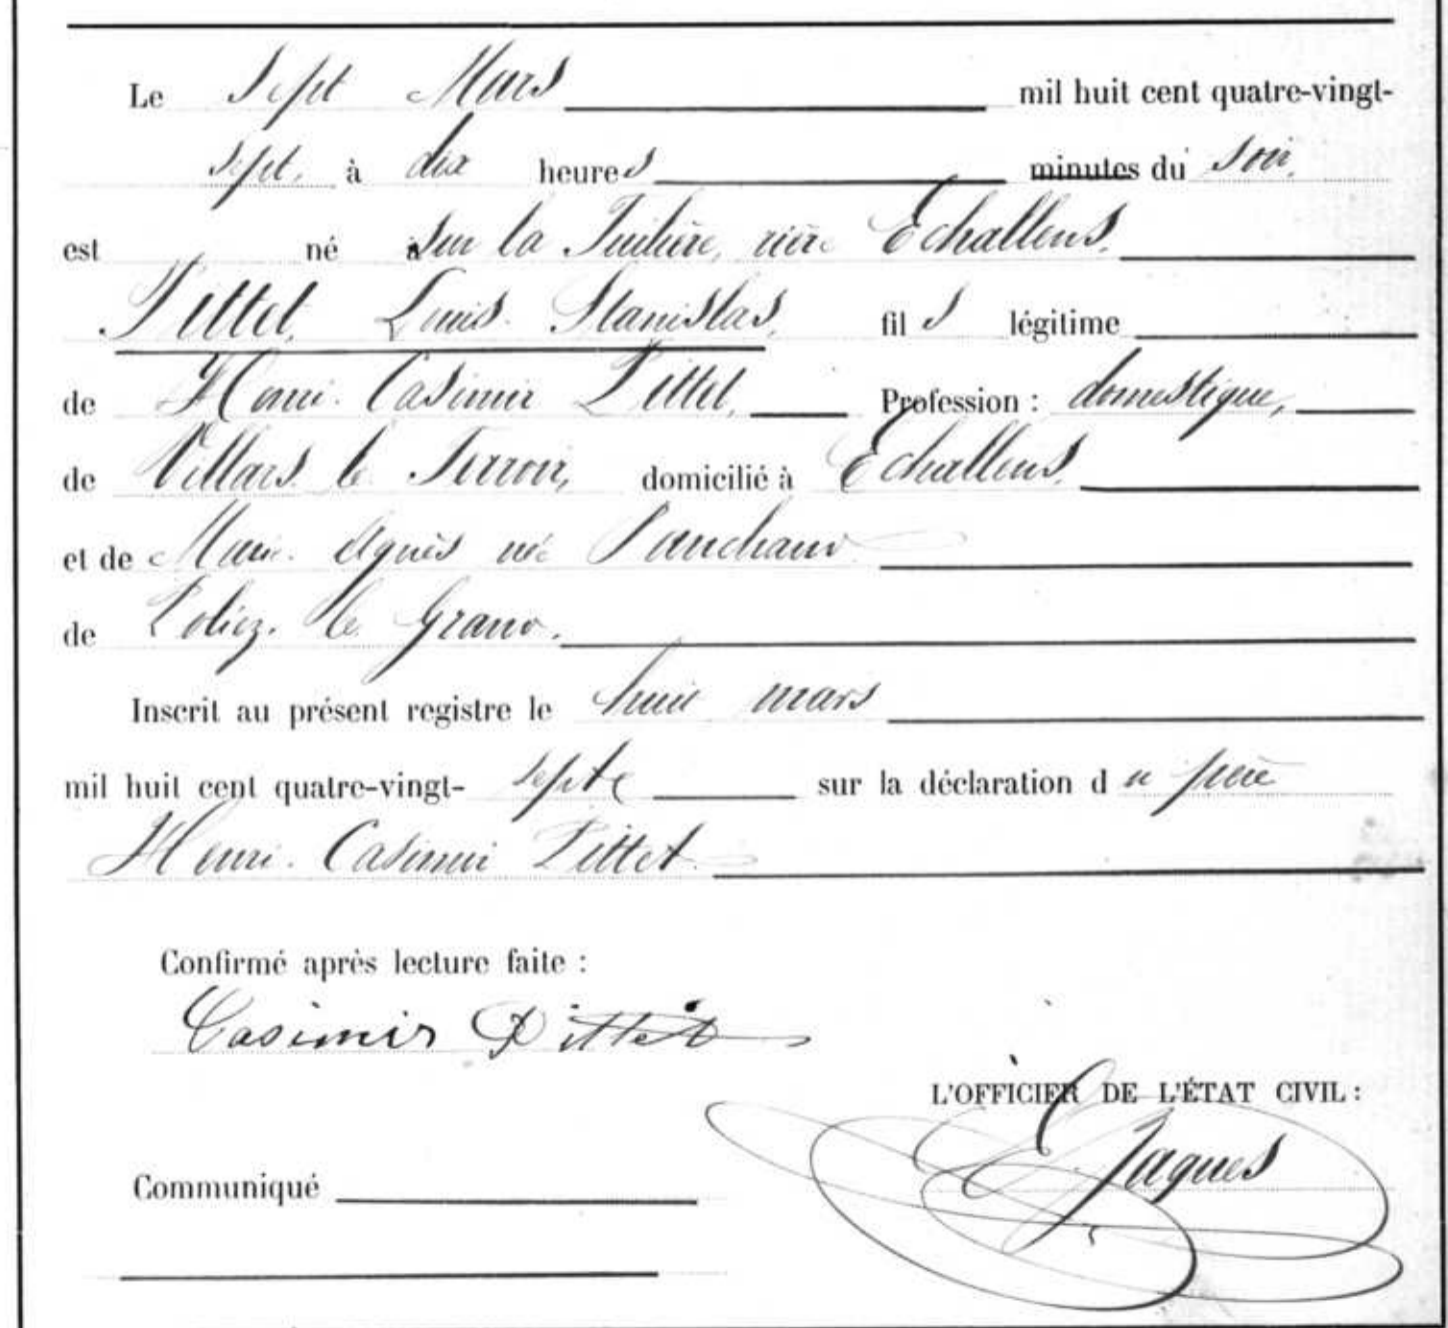 Le sept Mars mil huit cent quatre-vingt-
sept, à dix heures minutes du soir,
est né à sur la Tuilière, rière Echallens,
Pittet, Louis Stanislas, fils légitime
de Henri Casimir Pittet, Profession : domestique,
de Villars le Terroir, domicilié à Echallens,
et de Marie Agnès née Panchaud
de Poliez le Grand.
Inscrit au présent registre le huit mars
mil huit cent quatre-vingt-sept sur la déclaration du père
Henri Casimir Pittet
Confirmé après lecture faite :
Casimir Pittet
L'OFFICIER DE L'ÉTAT CIVIL :
E Jaques
Communiqué